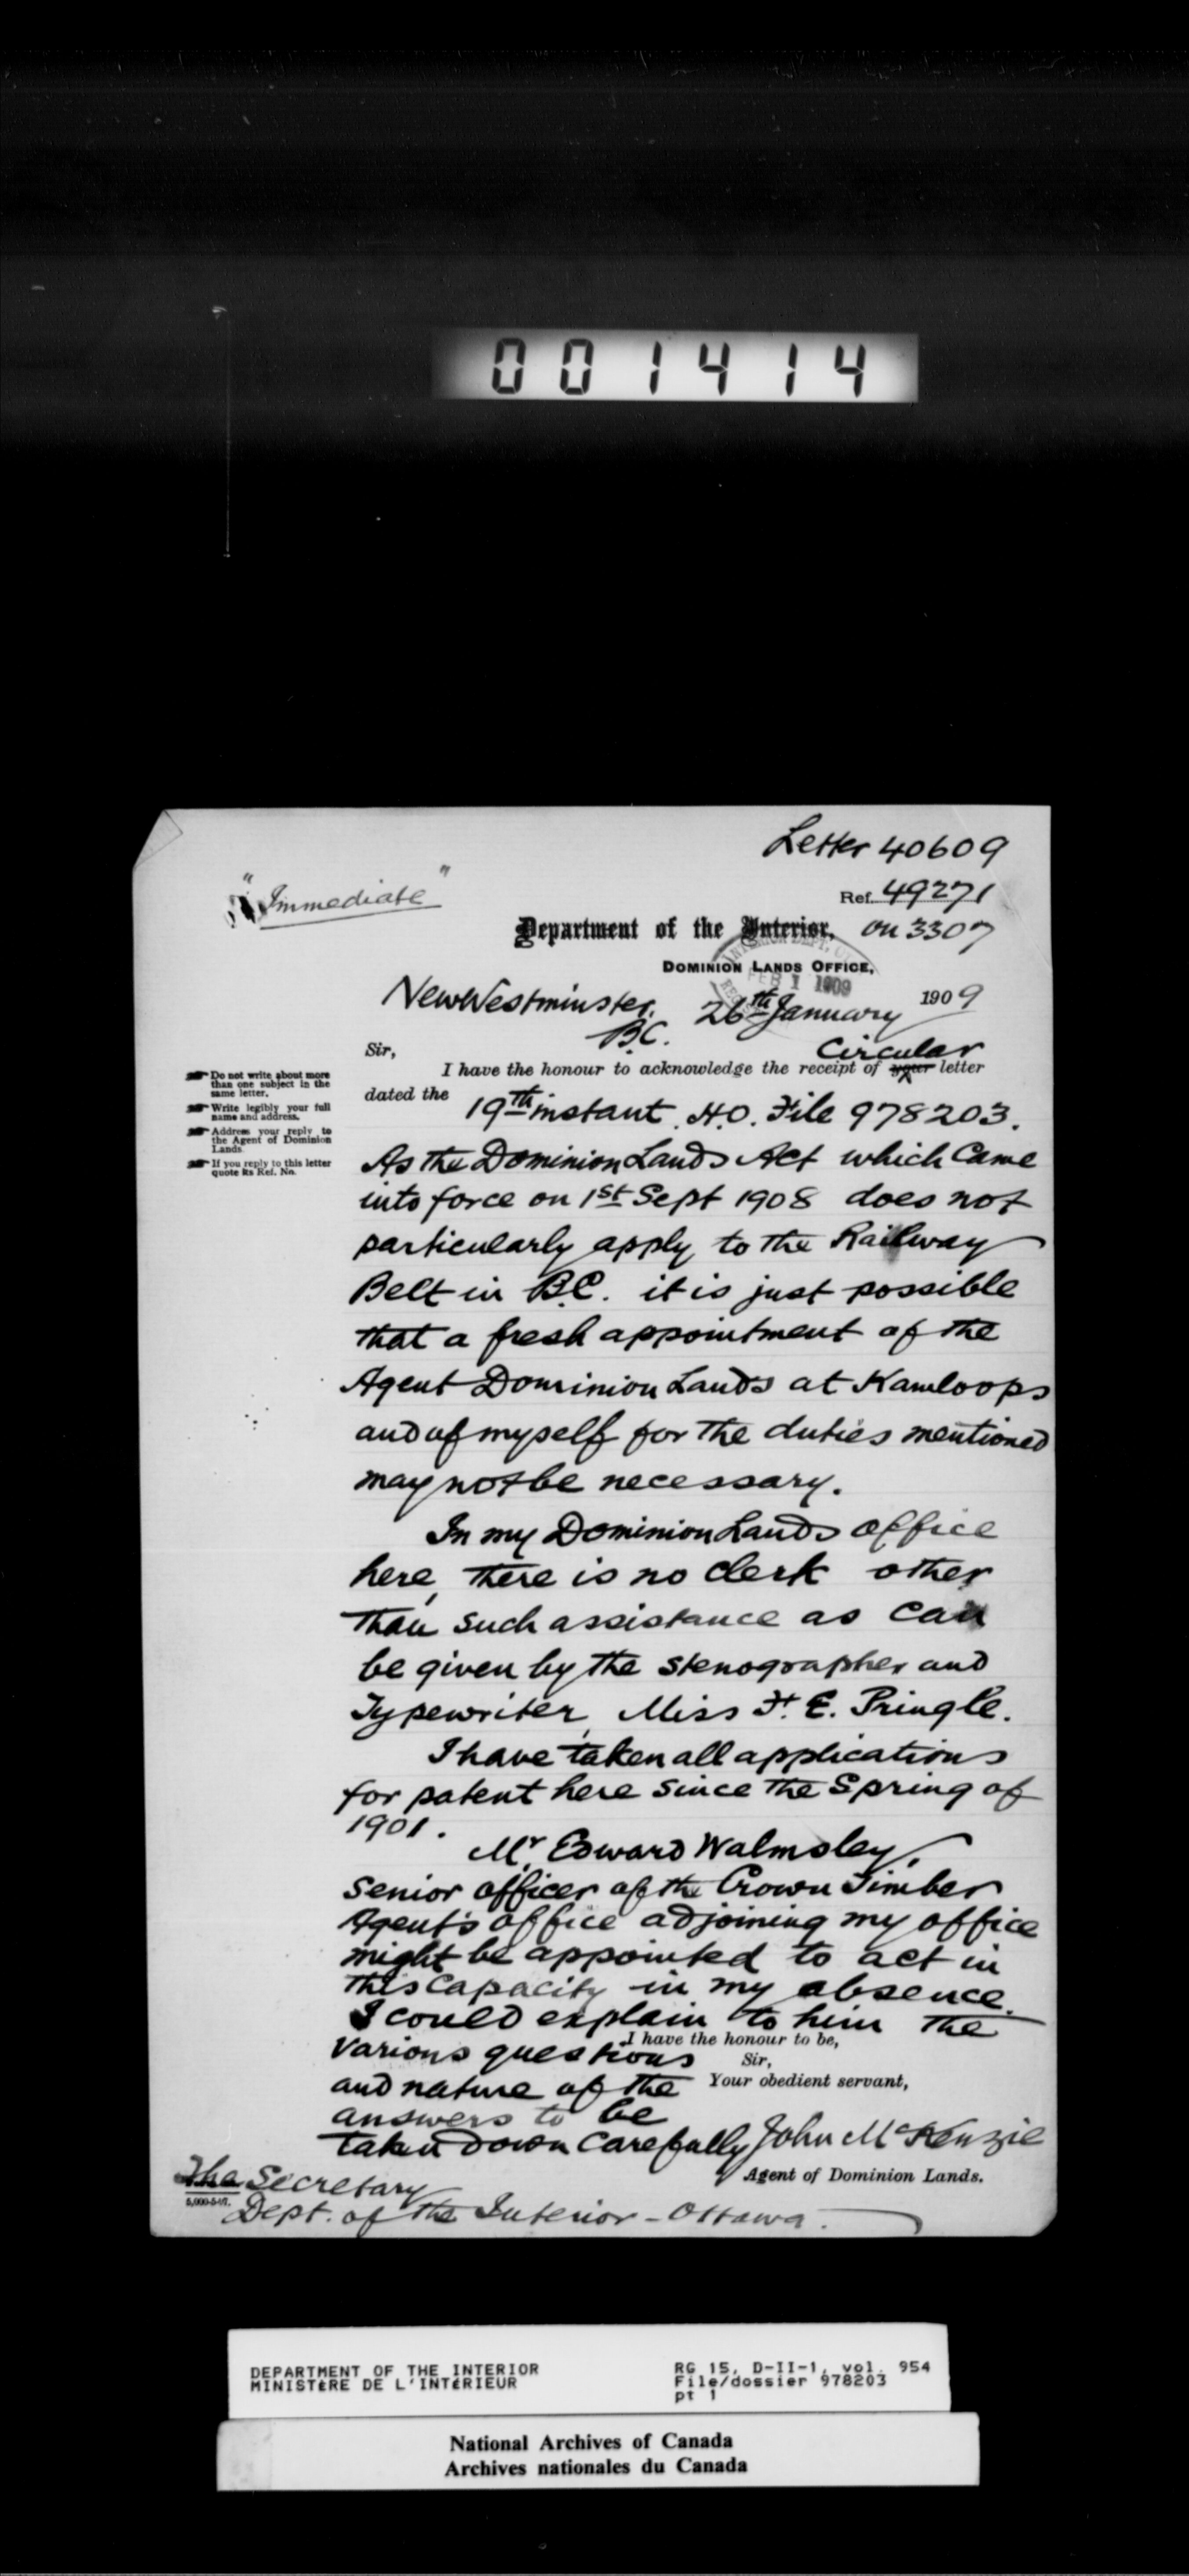 001414
Letter 40609
"Immediate"
Ref. 49271
on 3307
Department of the Interior,
DOMINION LANDS OFFICE,
INTERIOR DEPT.
FEB 1 1909
New Westminster, 26th January 1909
B.C.
Sir,
Circular
I have the honour to acknowledge the receipt of your letter
dated the 19th instant. H.O. File 978203.
Do not write about more
than one subject in the
same letter.
Write legibly your full
name and address.
Address your reply to
the Agent of Dominion
Lands.
If you reply to this letter
quote its Ref. No.
As the Dominion Lands Act which came
into force on 1st Sept 1908 does not
particularly apply to the Railway
Belt in B.C. it is just possible
that a fresh appointment of the
Agent Dominion Lands at Kamloops
and of myself for the duties mentioned
may not be necessary.
In my Dominion Lands office
here, there is no clerk other
than such assistance as can
be given by the stenographer and
Typewriter, Miss F. E. Pringle.
I have taken all applications
for patent here since the Spring of
1901.
Mr Edward Walmsley,
senior officer of the Crown Timber
Agent's office adjoining my office
might be appointed to act in
this capacity in my absence.
I could explain to him the
I have the honour to be,
various questions
Sir,
and nature of the
Your obedient servant,
answers to be
taken down carefully
John McKenzie
Agent of Dominion Lands.
The Secretary
5,000-5-07.
Dept. of the Interior - Ottawa.
DEPARTMENT OF THE INTERIOR
MINISTÈRE DE L'INTÉRIEUR
RG 15, D-II-1, vol. 954
File/dossier 978203
pt 1
National Archives of Canada
Archives nationales du Canada